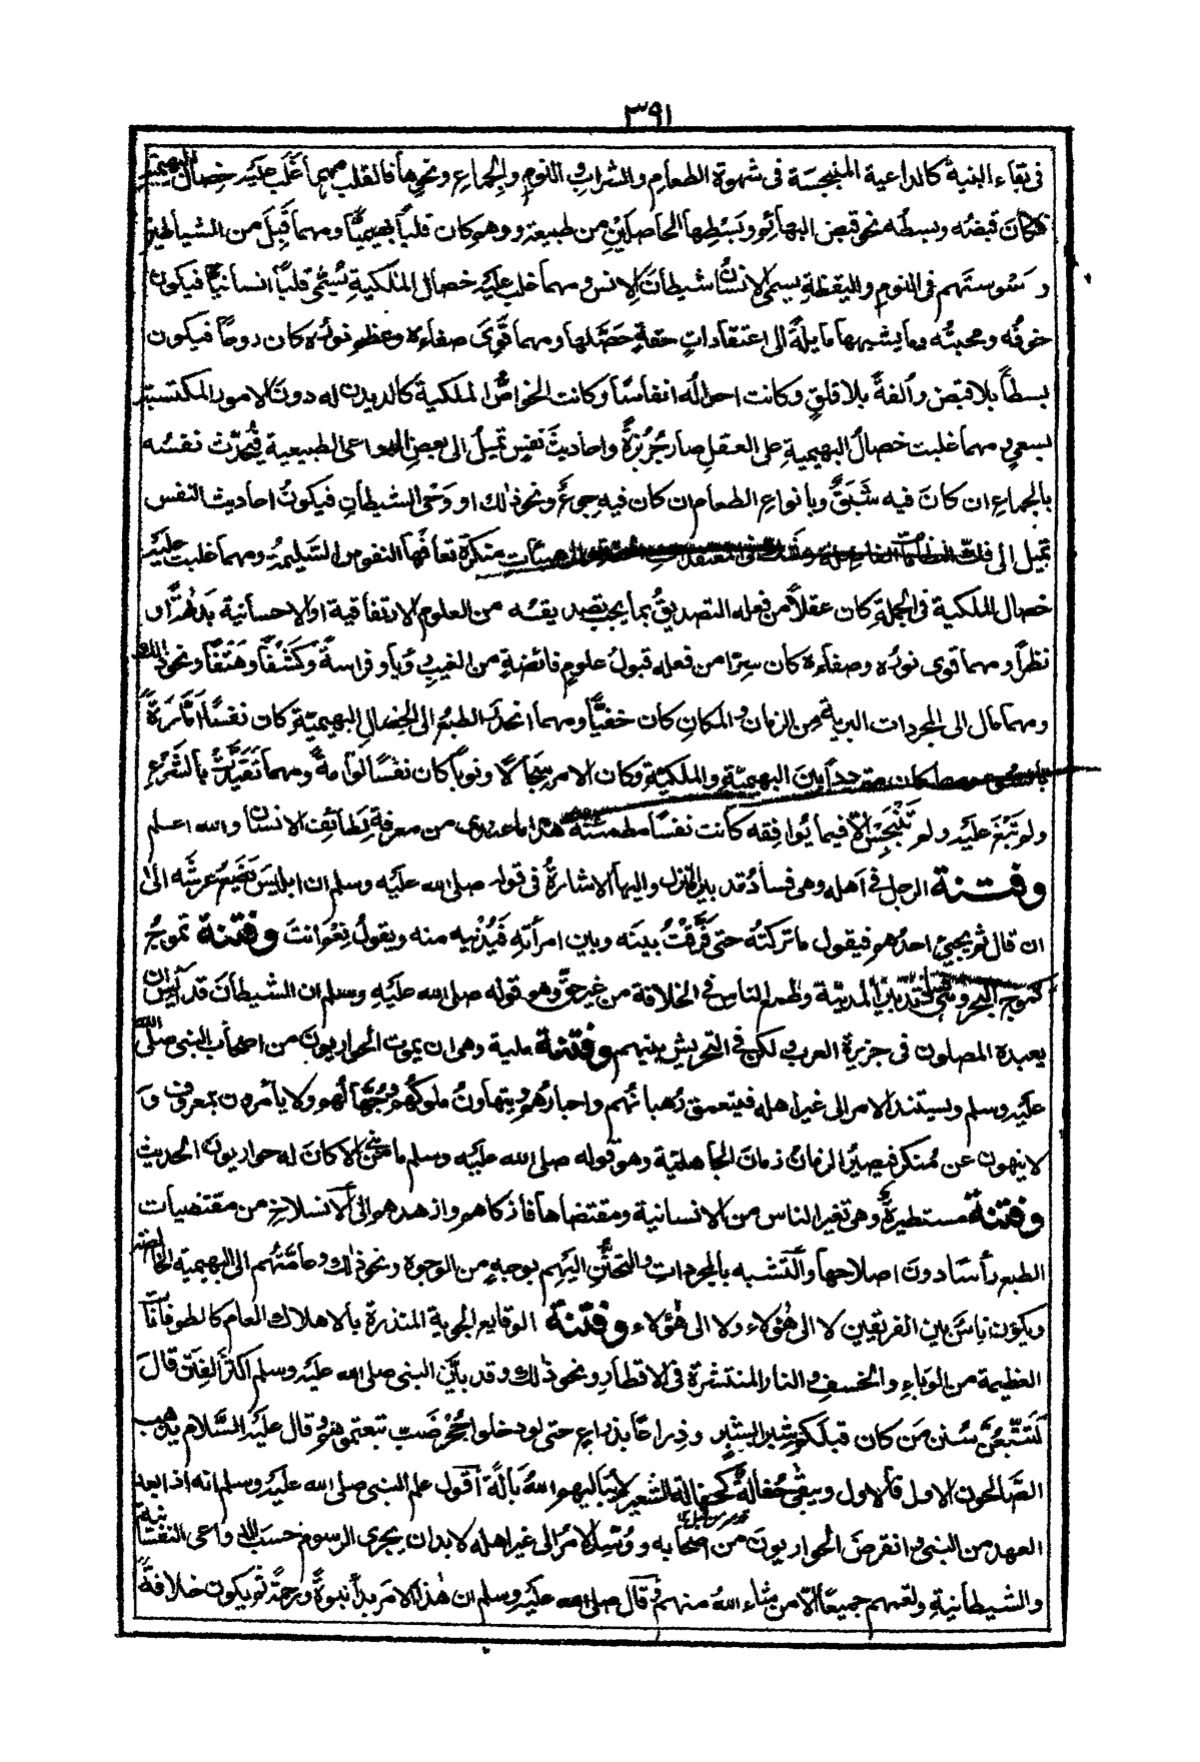 ٣٩١
فى بقاء البنية كالداعية المنبجسة فى شهوة الطعام والشراب والنوم والجماع ونحوها فالقلب مهما غلب عليه خصال البهيمية
فكان قبضه وبسطه نحو قبض البهائم وبسطها الحاصلين من طبيعة ووهم كان قلباً بهيمياً ومهما قبل من الشياطين
وسوستهم فى النوم واليقظة يسمى الانسان شيطان الانس ومهما غلب عليه خصال الملكية يسمى قلباً انسانياً فيكون
خوفه ومحبته وما يشبهها مايلة الى اعتقادات حقة حصلها ومهما قوى صفاءه وعظم نوره كان روحاً فيكون
بسطاً بلا قبض وألفة بلا قلق وكانت احواله انفاساً وكانت الخواص الملكية كالديدن له دون الامور المكتسبة
بسعي ومهما غلبت خصال البهيمية على العقل صار جربزة واحاديث نفس تميل الى بعض الدواعى الطبيعية فيحدث نفسه
بالجماع ان كان فيه شبق وبانواع الطعام ان كان فيه جوع ونحو ذلك او وحى الشيطان فيكون احاديث النفس
تميل الى فك النظامات الفاضلة وشك فى المعتقدات الحقة والى هيئات منكرة تعافها النفوس السليمة ومهما غلبت عليه
خصال الملكية فى الجملة كان عقلاً من فعله التصديق بما يجب تصديقه من العلوم الارتفاقية او الاحسانية بداهةً او
نظراً ومهما قوى نوره وصفاءه كان سراً من فعله قبول علوم فائضة من الغيب رؤيا وفراسة وكشفاً وهتفاً ونحو ذلك
ومهما مال الى المجردات البرية من الزمان والمكان كان خفياً ومهما انحدر الطبع الى الخصال البهيمية كان نفساً امارة
بالسوء ومهما كان متردداً بين البهيمية والملكية وكان الامر سجالاً ونوباً كان نفساً لوامة ومهما تقيدت بالشرع
ولم تبغ عليه ولم تنبجس الا فيما يوافقه كانت نفساً مطمئنة هذا ما عندى من معرفة لطائف الانسان والله اعلم
وفتنة الرجل فى اهله وهى فساد تدبير المنزل واليها الاشارة فى قوله صلى الله عليه وسلم ان ابليس يضع عرشه الى
ان قال ثم يجيئ احدهم فيقول ما تركته حتى فرقت بينه وبين امرأته فيدنيه منه ويقول نعم انت وفتنة تموج
كموج البحر وهى فساد تدبير المدينة وطمع الناس فى الخلافة من غير حق وهو قوله صلى الله عليه وسلم ان الشيطان قد أيس ان
يعبده المصلون فى جزيرة العرب ولكن فى التحريش بينهم وفتنة ملية وهى ان يموت الحواريون من اصحاب النبى صلى الله
عليه وسلم ويستند الامر الى غير اهله فيتعمق رهبانهم واحبارهم ويتهاون ملوكهم وجهالهم ولا يأمرون بمعروف و
لا ينهون عن منكر فيصير الزمان زمان الجاهلية وهو قوله صلى الله عليه وسلم ما من نبى الا كان له حواريون الحديث
وفتنة مستطيرة وهى تغير الناس من الانسانية ومقتضاها فازكاهم وازهدهم الى الانسلاخ من مقتضيات
الطبع رأساً دون اصلاحها والتشبه بالمجردات والتحنن اليهم بوجه من الوجوه ونحو ذلك وعامتهم الى البهيمية الخالصة
ويكون ناس بين الفريقين لا الى هؤلاء ولا الى هؤلاء وفتنة الوقايع الجوية المنذرة بالاهلاك العام كالطوفانات
العظيمة من الوباء والخسف والنار المنتشرة فى الاقطار ونحو ذلك وقد بين النبى صلى الله عليه وسلم اكثر الفتن قال
لتتبعن سنن من كان قبلكم شبراً بشبر وذراعاً بذراع حتى لو دخلوا جحر ضب تبعتموهم وقال عليه السلام يذهب
الصالحون الاول فالاول ويبقى حفالة كحفالة الشعير لا يباليهم الله بالة أقول علم النبى صلى الله عليه وسلم انه اذا بعد
العهد من النبى وانقرض الحواريون من اصحابه ووسد الامر الى غير اهله لابد ان يجرى الرسوم حسب الدواعى النفسانية
والشيطانية ويعمهم جميعاً الا من شاء الله منهم وقال صلى الله عليه وسلم ان هذا الامر بدأ نبوةً ورحمةً ثم يكون خلافةً